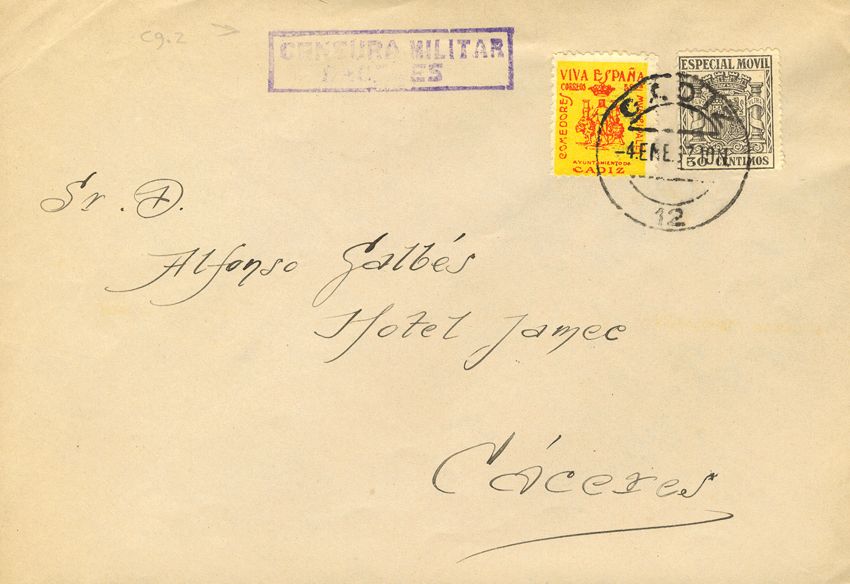 cg. 2
CENSURA MILITAR
VIVA ESPAÑA
CORREO
COMEDORES
AYUNTAMIENTO DE
CADIZ
ESPECIAL MOVIL
CENTIMOS
CADIZ
-4.ENE.37.10M
12
Sr. D.
Alfonso Galbés
Hotel Jamec
Cáceres